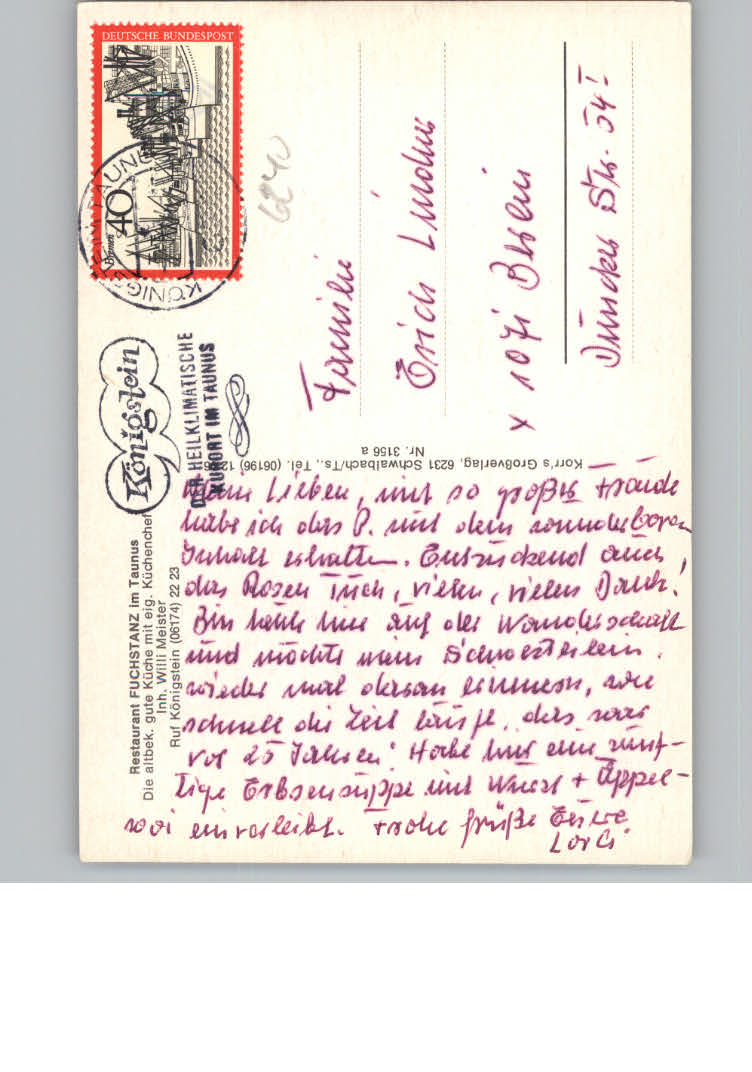 DEUTSCHE BUNDESPOST
Bremen
40
KÖNIGSTEIN TAUNUS
6240
Königstein
DER HEILKLIMATISCHE
KURORT IM TAUNUS
Restaurant FUCHSTANZ im Taunus
Die altbek. gute Küche mit eig. Küchenchef
Inh. Willi Meister
Ruf Königstein (06174) 22 23
Korr's Großverlag, 6231 Schwalbach/Ts., Tel. (06196)
Nr. 3156 a
Familie
Erich
x 1071 Berlin
Str. 54 I
Meine Lieben, mit so großer Freude
habe ich das P. mit dem wunderbaren
Inhalt erhalten. Entzückend auch
das Rosen Tuch, vielen, vielen Dank!
Bin heute hier auf der Wanderschaft
und möchte mein Schwesterlein
wieder mal daran erinnern, wie
schnell die Zeit läuft, das war
vor 25 Jahren! Habe hier eine zünf-
tige Erbsensuppe mit Wurst + Äppel-
woi einverleibt. Frohe Grüße Eure